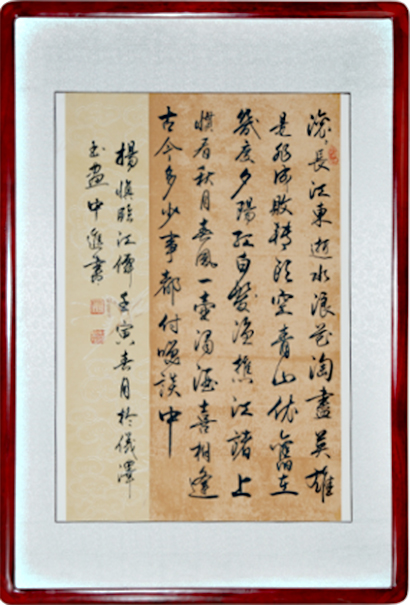 滾々長江東逝水浪花淘盡英雄
是非成敗轉頭空青山依舊在
幾度夕陽紅白髮漁樵江渚上
慣看秋月春風一壺濁酒喜相逢
古今多少事都付咲談中
楊慎臨江僊壬寅春月於儀澤
中書